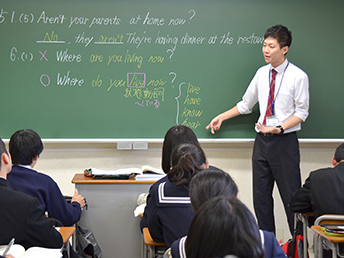 5 1. (5) Aren't your parents at home now?
No , they aren't They're having dinner at the restau
6. (1) X Where are you living now ?
O Where do you live now ?
live
have
know
hear